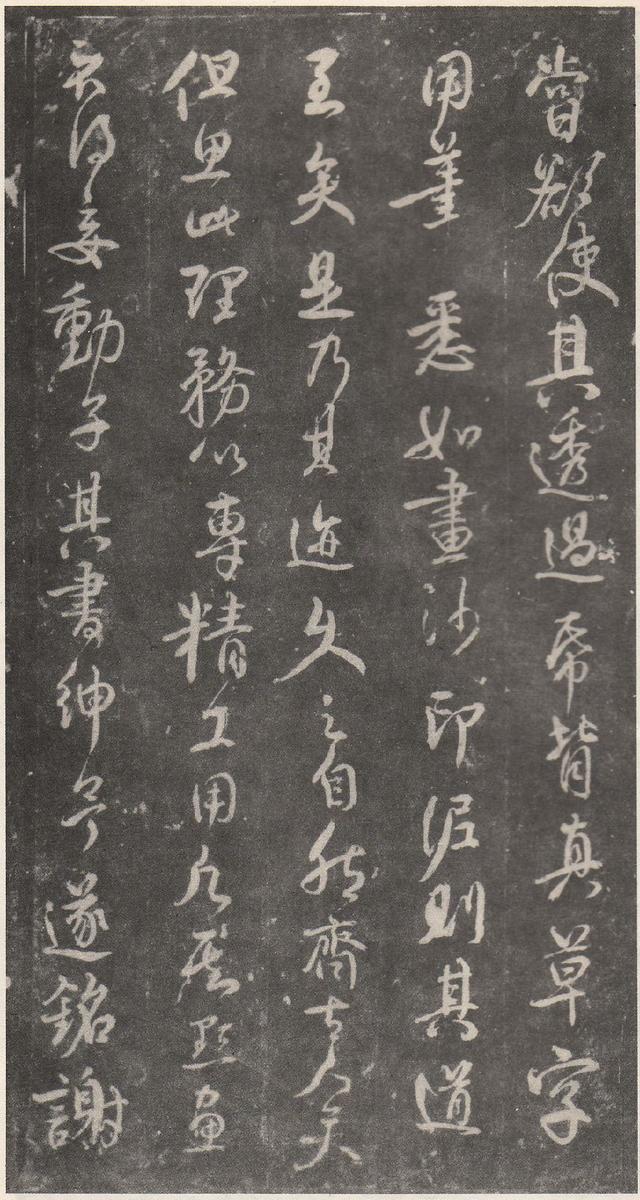 嘗欲使其透過帋背真草字
用筆悉如畫沙印泥則其道
至矣是乃其迹久之自然齊古人矣
但思此理務以專精工用凡其點畫
不得妄動子其書紳余遂銘謝